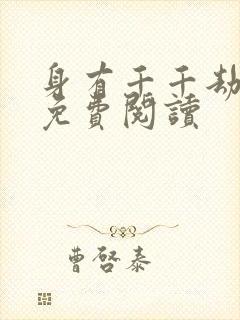 身有千千劫
免費閱讀
曹啓泰